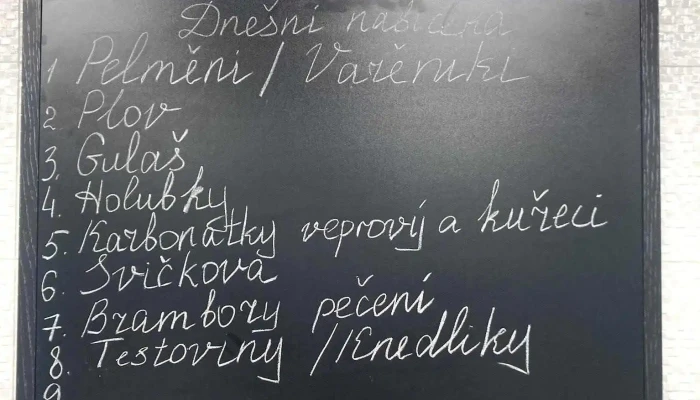 Dnešní nabídka
1 Pelměni / Varěniki
2 Plov
3. Gulaš
4. Holubky
5. Karbonatky veprový a kuřeci
6. Svičkova
7. Brambory pečení
8. Testoviny / Knedliky
9